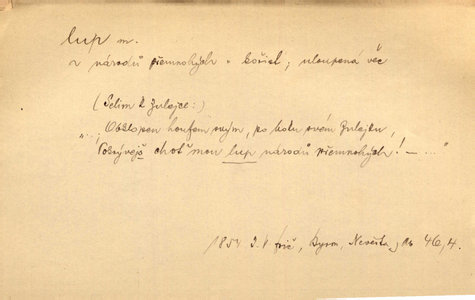 lup m.
z národů přemnohých = kořist; uloupená věc
(Selim k Zulejce:)
"..., Obklopen houfem mým, po boku svém Zulejku,
Pobývejž choť mou lup národů přemnohých! — ..."
185 J. V. Frič, Byron, Nevěsta 46,4.